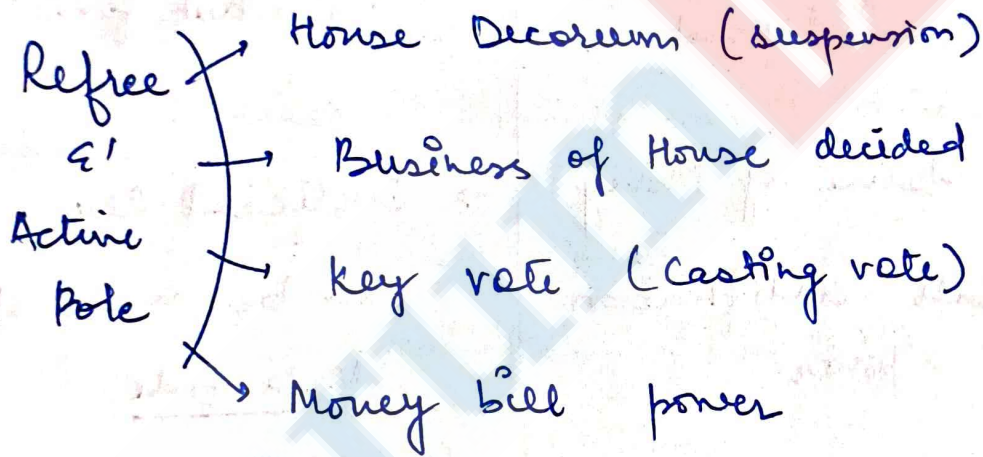 Refree
&
Active
Pole
House Decoreum (suspension)
Business of House decided
Key vote (Casting vote)
Money bill power